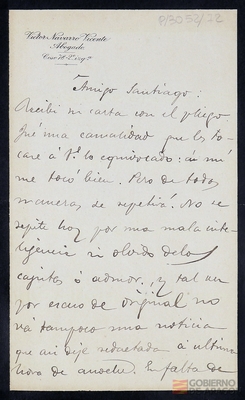 83052/22
Victor Navarro Vicente
Abogado
Coso
Amigo Santiago:
Recibí su carta con el pliego
Fué una casualidad que les to-
case á Vs. lo equivocado: á mí
me tocó bien. Pero de todas
maneras se repetirá. No se
repite hoy por una mala inte-
ligencia ni olvido de los
cajistas ó admor., y tal vez
por exceso de original no
vá tampoco una noticia
que así dije redactada á última
hora de anoche. La falta de
GOBIERNO
DE ARAGON